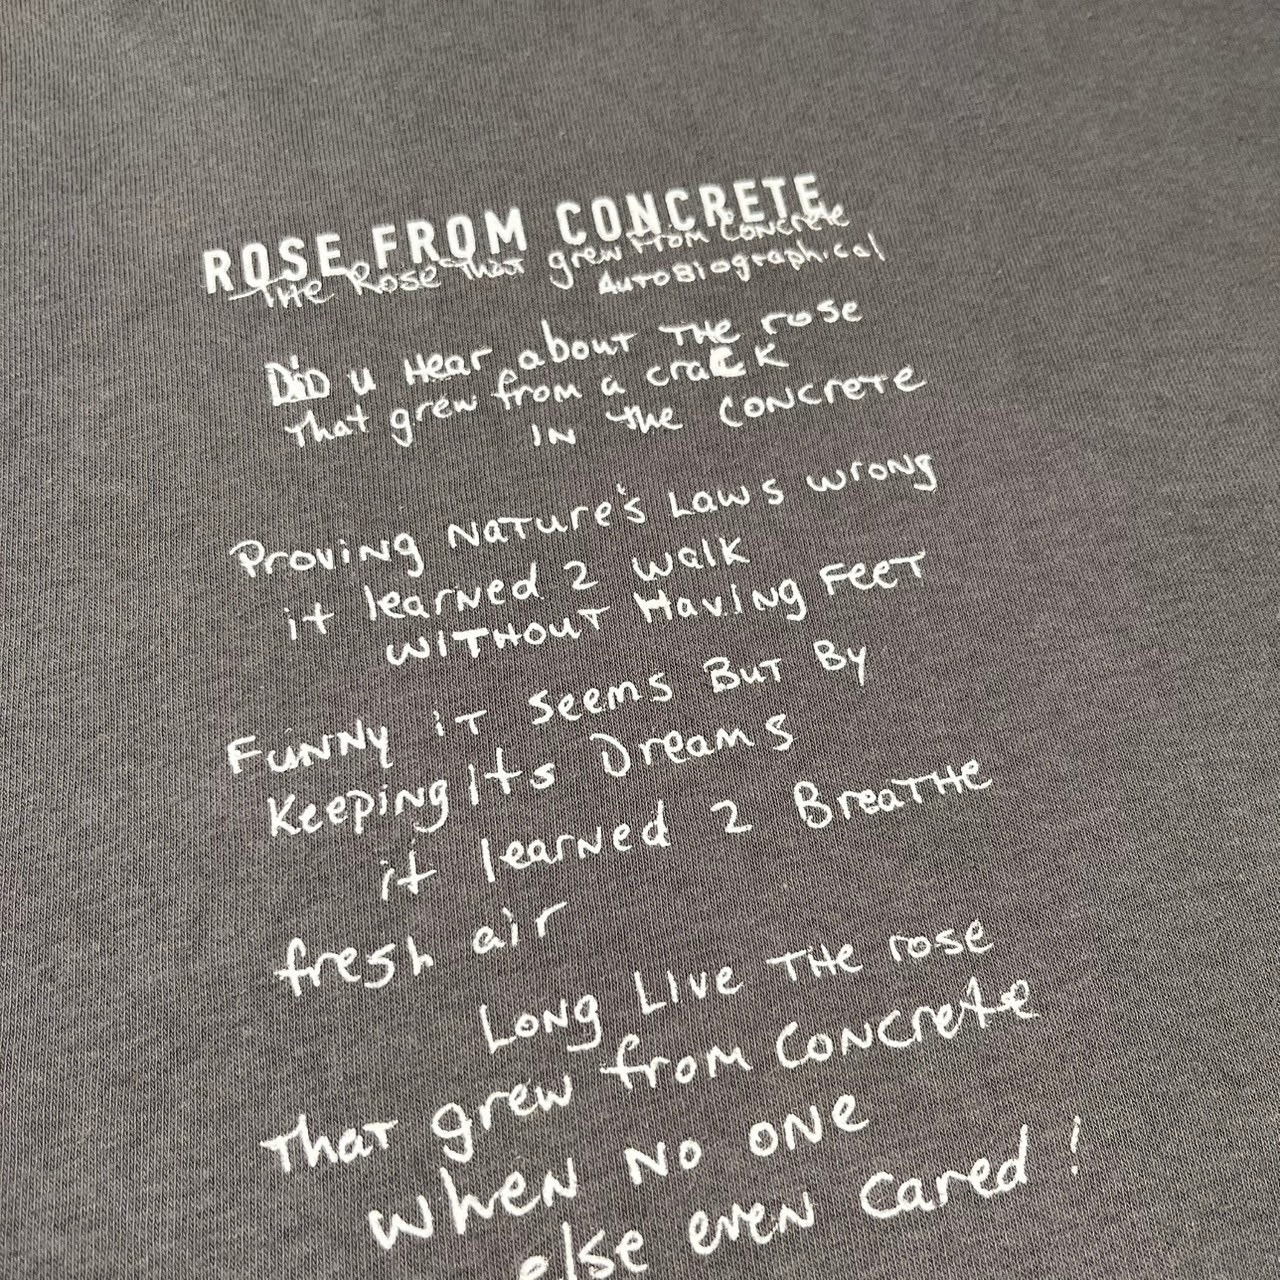 ROSE FROM CONCRETE
THE Rose THAT grew From Concrete
AUTOBiographical
DiD u Hear about THe rose
That grew from a craCK
IN the CONCreTe
Proving NaTure's Laws wrong
it learNed 2 walk
WITHOUT HaviNg FeeT
FuNNy iT seems BuT By
KeepiNg Its Dreams
it learNed 2 BreaTHe
fresh air
LONg Live THe rose
That grew from CONCrete
wheN No oNe
else eveN cared!